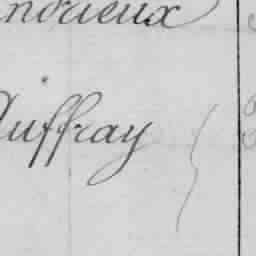 ndrieux
Auffray